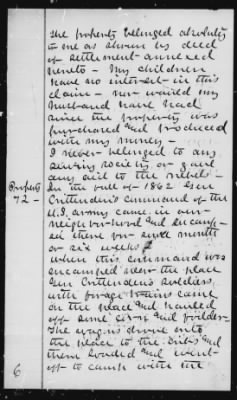 the property belonged absolutely
to me as shown by deed
of settlement annexed
hereto – My children
have no interest in this
claim – nor would my
husband have had
since the property was
purchased and produced
with my money –
I never belonged to any
sewing society, or gave
any aid to the rebels –
Property In the fall of 1862 Gen
72 – Crittenden's command of the
U.S. army came in our
neighborhood and encamp-
ed there for some month
or six weeks
when this command was
encamped near the place
Gen Crittenden's soldiers
with forage trains came
on the place and hauled
off some corn and fodder –
The wagons drove onto
the place to the
them loaded and went
off to camp with the
6